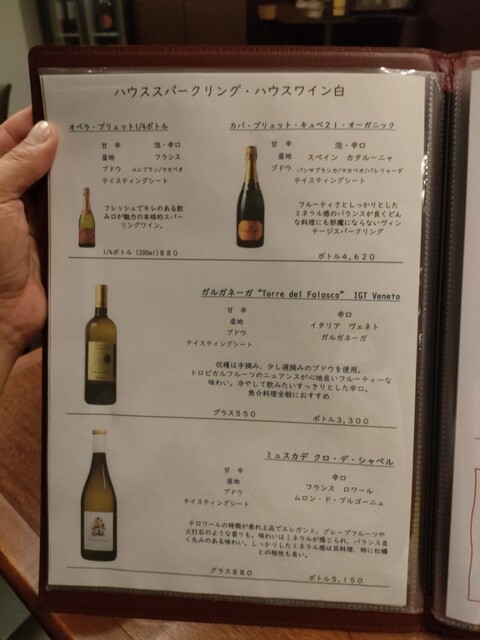 ハウススパークリング・ハウスワイン白
オペラ・ブリュット1/4ボトル
甘　辛　泡・辛口
産地　フランス
ブドウ　ユニブラン/マカベオ
テイスティングシート
フレッシュでキレのある飲
み口が魅力の本格的スパー
リングワイン。
1/4ボトル (200ml) 880
カバ・ブリュット・キュベ21・オーガニック
甘　辛　泡・辛口
産地　スペイン　カタルーニャ
ブドウ　パンサブランカ/マカベオ/パレリャーダ
テイスティングシート
フルーティさとしっかりとした
ミネラル感のバランスが良くどん
な料理にも邪魔にならないヴィン
テージスパークリング
ボトル4,620
ガルガネーガ "Torre del Falasco" IGT Veneto
甘　辛　辛口
産地　イタリア　ヴェネト
ブドウ　ガルガネーガ
テイスティングシート
収穫は手摘み、少し遅摘みのブドウを使用。
トロピカルフルーツのニュアンスが心地良いフルーティーな
味わい。冷やして飲みたいすっきりとした辛口。
魚介料理全般におすすめ
グラス550　ボトル3,300
ミュスカデ クロ・デ・シャペル
甘　辛　辛口
産地　フランス　ロワール
ブドウ　ムロン・ド・ブルゴーニュ
テイスティングシート
テロワールの特徴が表れ上品でエレガント。グレープフルーツや
火打石のような香りも。味わいはミネラルが感じられ、バランス良
く丸みのある味わい。しっかりしたミネラル感は貝料理、特に牡蠣
との相性も良い。
グラス880　ボトル5,150